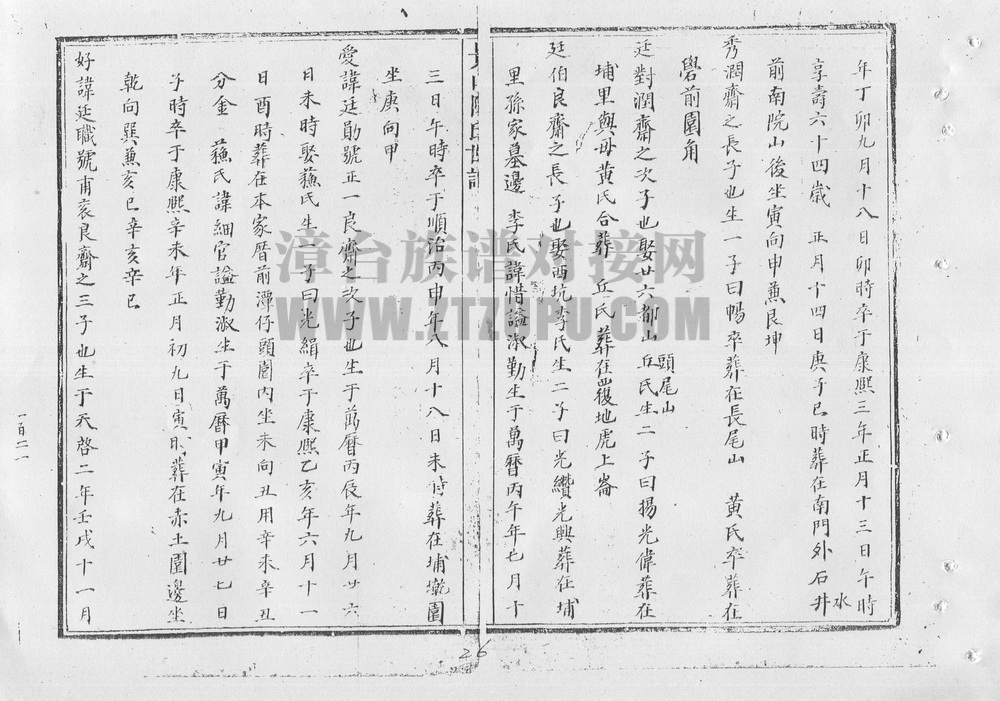 年丁卯九月十八日卯時卒于康熙三年正月十三日午時
享壽六十四歲 正月十四日庚子巳時葬在南門外石井水
前南院山後坐寅向申兼艮坤
秀潤齋之長子也生一子曰暢卒葬在長尾山 黄氏卒葬在
礐前園角
廷對潤齋之次子也娶廿六都山頭尾山丘氏生二子曰揚光偉葬在
埔里與母黄氏合葬 丘氏葬在覆地虎上崙
廷伯良齋之長子也娶西坑李氏生二子曰光纘光興葬在埔
里孫家墓邊 李氏諱惜謚淑勤生于萬曆丙午年七月十
陳氏世譜
三日午時卒于順治丙申年八月十八日未時葬在埔墘園
坐庚向甲
愛諱廷勛號正一良齋之次子也生于萬曆丙辰年九月廿六
日未時娶蘓氏生一子曰光緝卒于康熙乙亥年六月十一
日酉時葬在本家厝前潭仔頭園内坐未向丑用辛未辛丑
分金 蘓氏諱細官謚勤淑生于萬曆甲寅年九月廿七日
子時卒于康熙辛未年正月初九日寅時葬在赤土園邊坐
乾向巽兼亥巳辛亥辛巳
好諱廷職號甫衷良齋之三子也生于天啓二年壬戌十一月
一百二一
26
漳台族谱对接网
WWW.ZTZUPU.COM